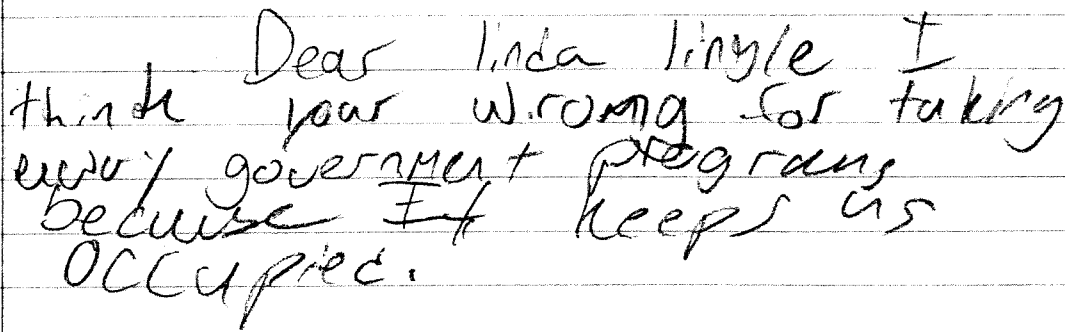 Dear linda lingle I
think your wrong for taking
away government programs
because It keeps us
occupied.